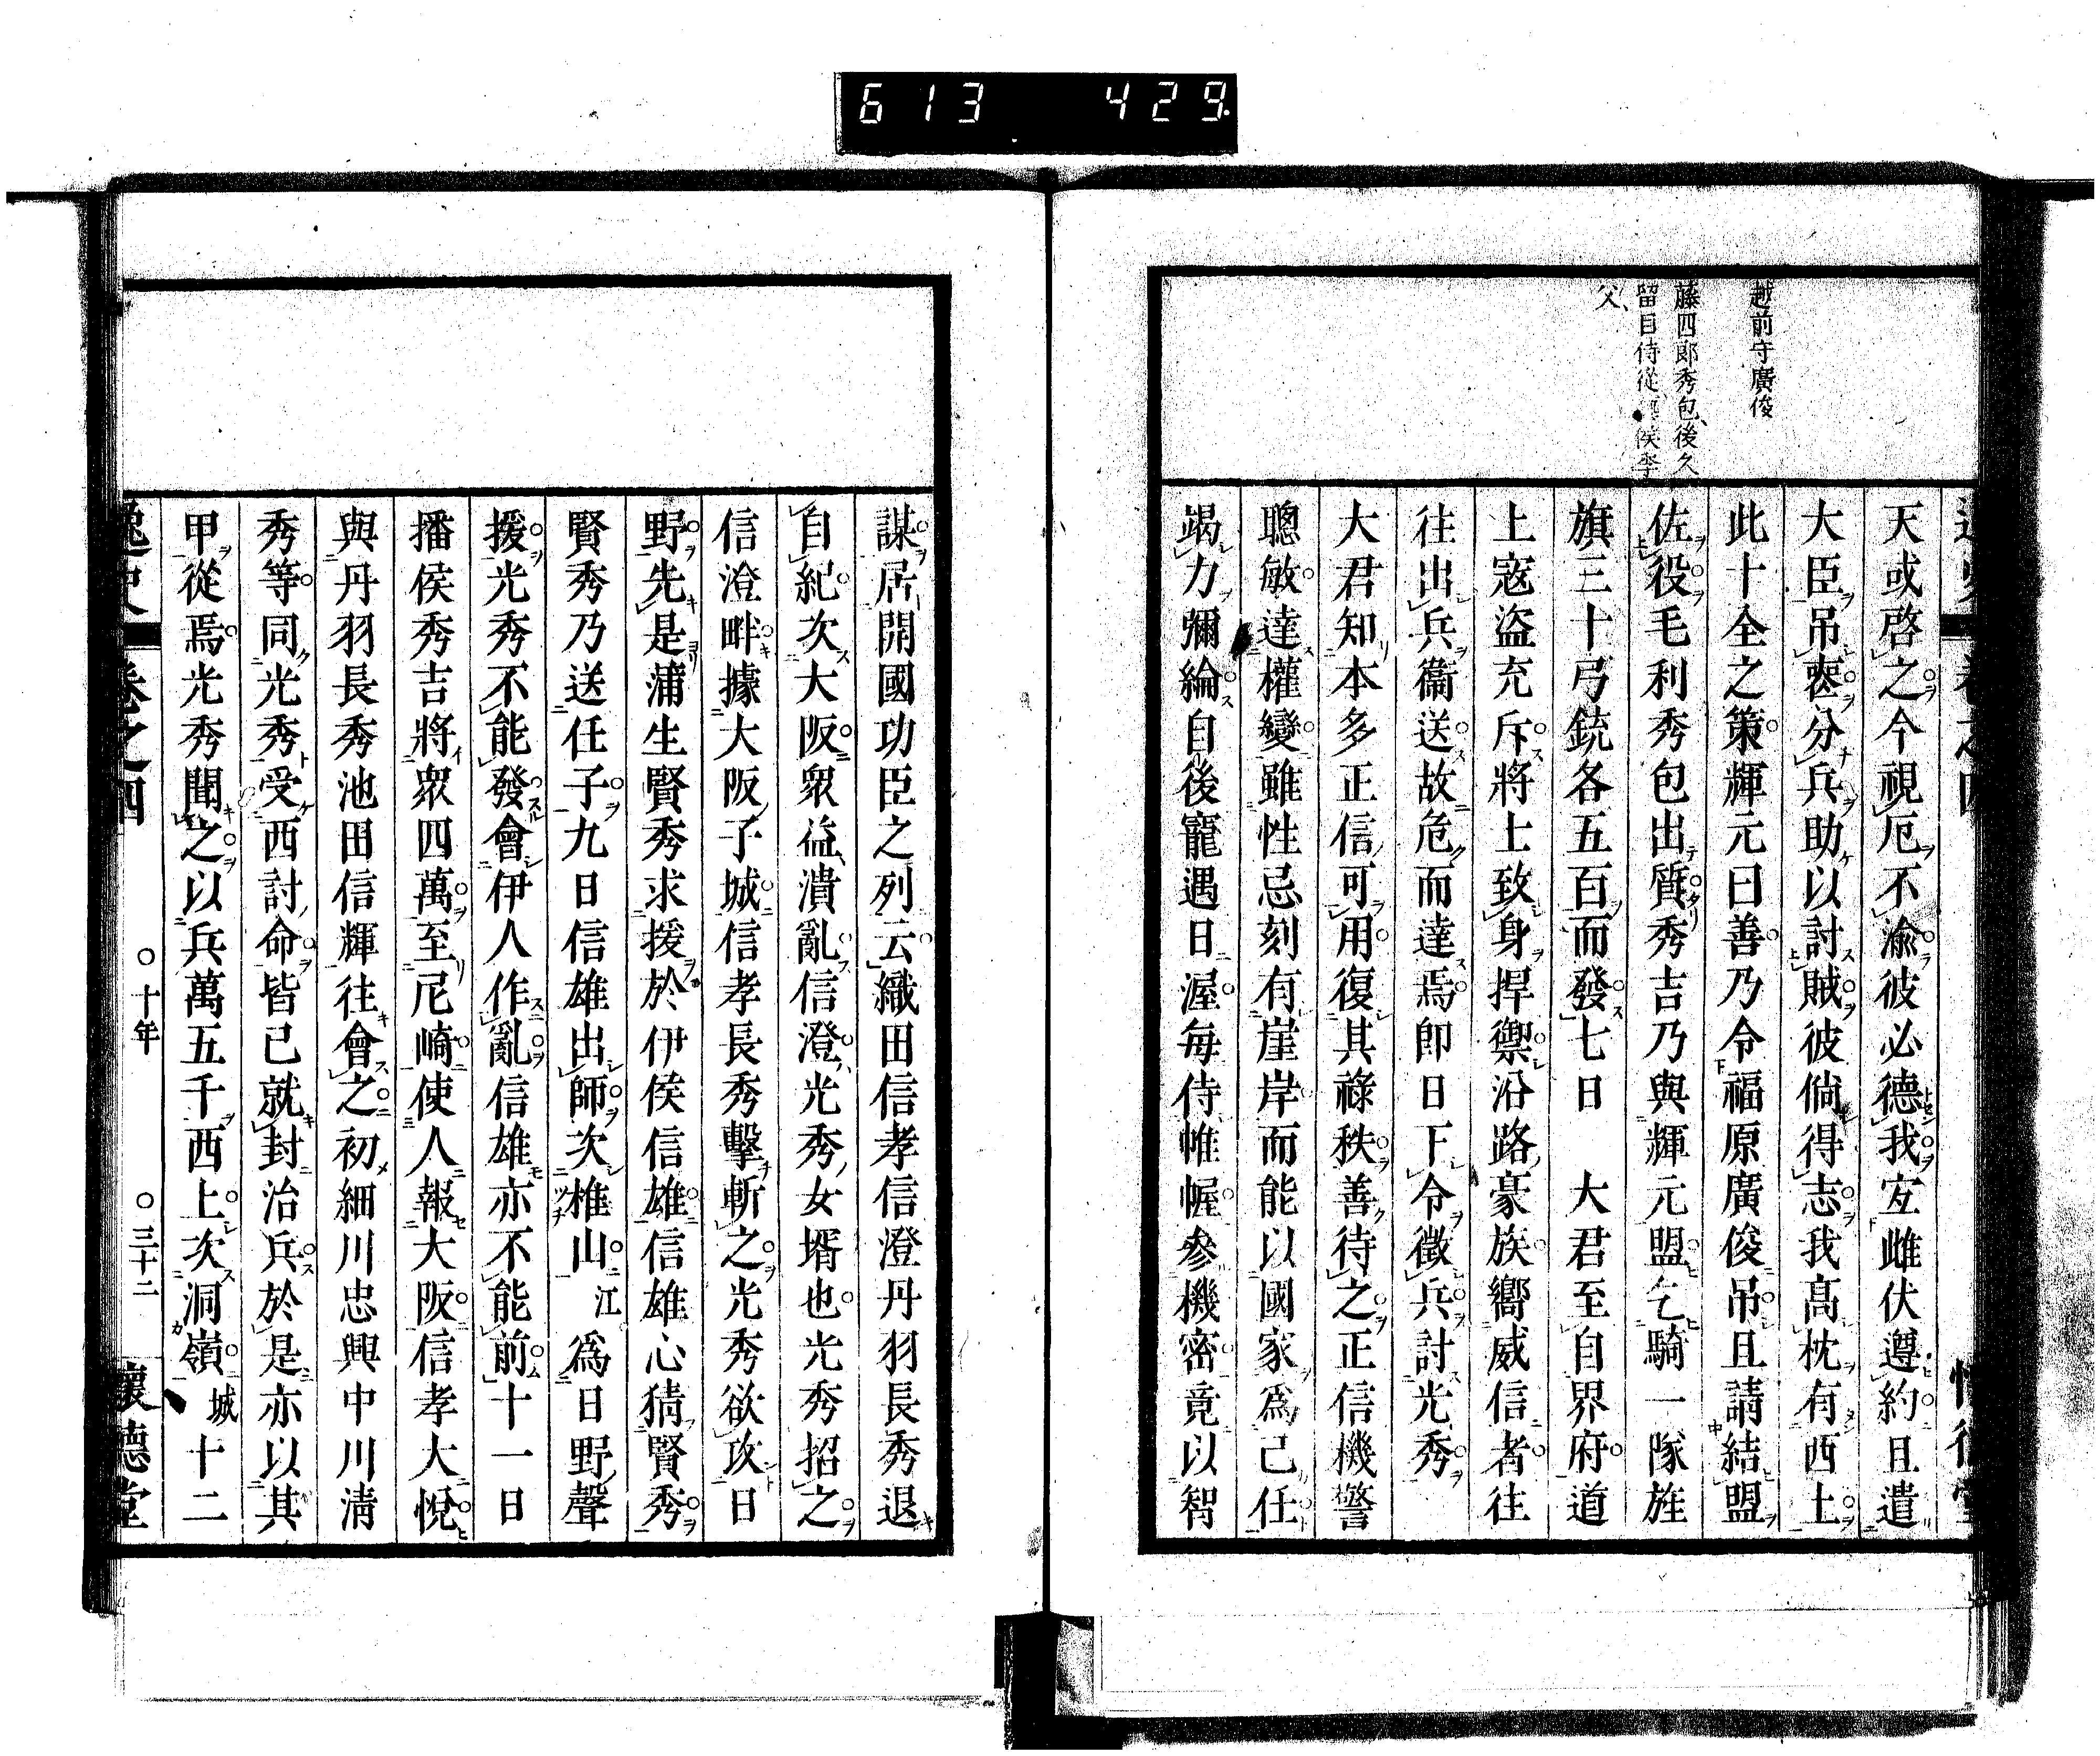 613 429
越前守廣俊
藤四郎秀包、後久
留目侍從
父、
天或啓之、今視厄不渝、彼必德我、宜雌伏遵約、且遣
大臣吊喪、分兵助以討賊、彼倘得志、我高枕有西土、
此十全之策、輝元曰善、乃令福原廣俊吊、且請結盟
佐役、毛利秀包出質、秀吉乃與輝元盟、乞騎一隊旌
旗三十弓銃各五百而發、七日 大君至自界府、道
上寇盜充斥、將士致身捍禦、沿路豪族嚮威信者、往
往出兵衞送、故危而達焉、卽日下令徵兵討光秀、
大君知本多正信可用、復其祿秩、善待之、正信機警
聰敏、達權變、雖性忌刻有崖岸、而能以國家爲己任、
竭力彌綸、自後寵遇日渥、每侍帷幄、參機密、竟以智
謀、居開國功臣之列云、織田信孝信澄丹羽長秀退
自紀、次大阪、衆益潰亂、信澄光秀女壻也、光秀招之、
信澄畔據大阪子城、信孝長秀擊斬之、光秀欲攻日
野、先是蒲生賢秀求援於伊侯信雄、信雄心猜賢秀、
賢秀乃送任子、九日信雄出師、次椎山江、爲日野聲
援、光秀不能發、會伊人作亂、信雄亦不能前、十一日
播侯秀吉將衆四萬、至尼崎、使人報大阪、信孝大悅、
與丹羽長秀池田信輝往會之、初細川忠興中川淸
秀等、同光秀受西討命、皆已就封治兵、於是亦以其
甲從焉、光秀聞之、以兵萬五千西上、次洞嶺城、十二
逸史 卷之四 ○十年 ○三十二 懷德堂